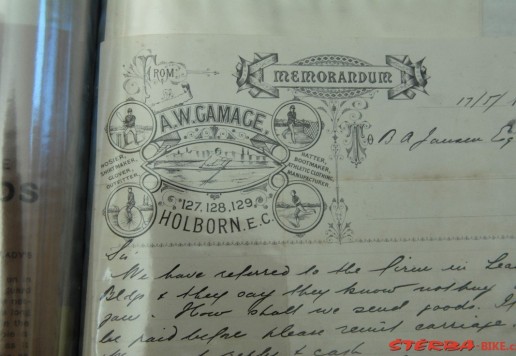 FROM
MEMORANDUM
17/5/
A.W. GAMAGE,
To B A Jansen Esq
HOSIER,
SHIRTMAKER,
GLOVER,
OUTFITTER.
HATTER,
BOOTMAKER,
ATHLETIC CLOTHING
MANUFACTURER.
127, 128, 129,
HOLBORN. E.C.
Sir
We have referred to the firm in Lea
Bldgs & they say they know nothing
you. How shall we send goods. If
be paid before please remit carriage.
& cash
STERBA-BIKE